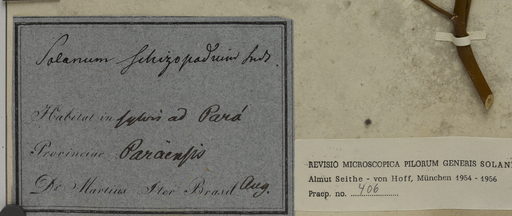 Solanum schizopodium Sendt.
Habitat in sylvis ad Pará
Provinciae Paraensis
Dr. Martius Iter Brasil Aug.
REVISIO MICROSCOPICA PILORUM GENERIS SOLANI
Almut Seithe - von Hoff, München 1954 - 1956
Praep. no. 406